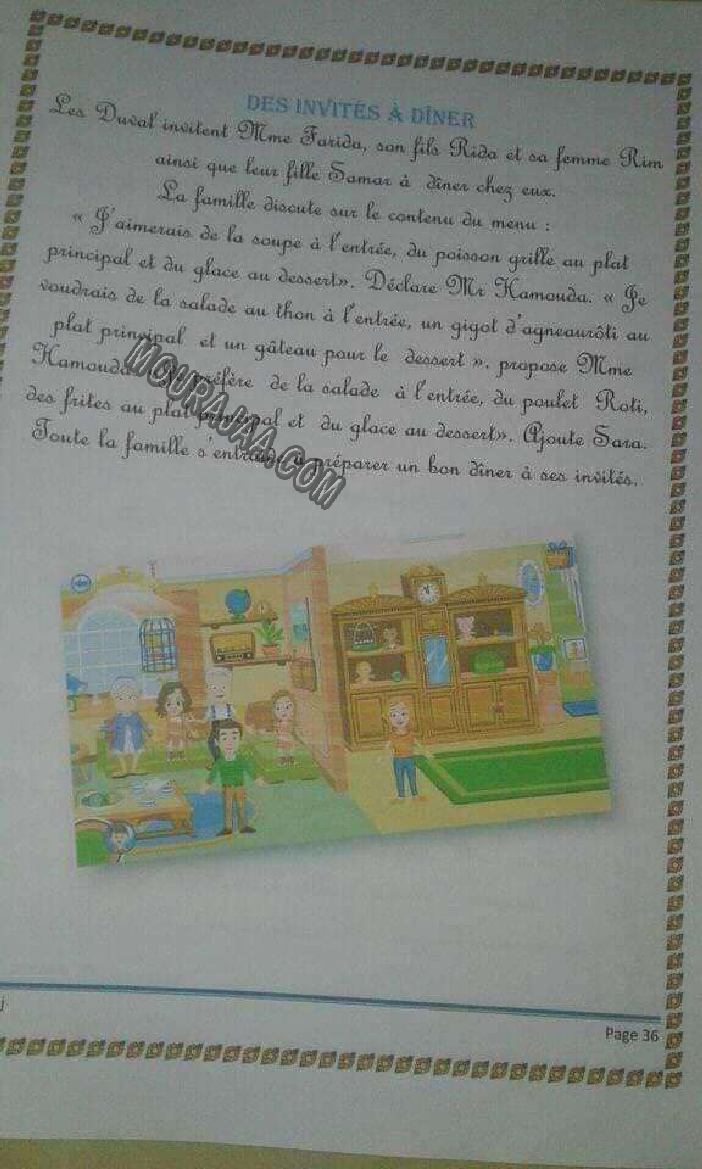 DES INVITÉS À DÎNER
Les Duval invitent Mme Farida, son fils Rida et sa femme Rim
ainsi que leur fille Samar à dîner chez eux.
La famille discute sur le contenu du menu :
« J'aimerais de la soupe à l'entrée, du poisson grillé au plat
principal et du glace au dessert». Déclare Mr Hamouda. « Je
voudrais de la salade au thon à l'entrée, un gigot d'agneaurôti au
plat principal et un gâteau pour le dessert ». propose Mme
Hamouda. préfère de la salade à l'entrée, du poulet Roti,
des frites au plat principal et du glace au dessert». Ajoute Sara.
Toute la famille s'entraide à préparer un bon dîner à ses invités.
MOURAJAA.COM
j
Page 36